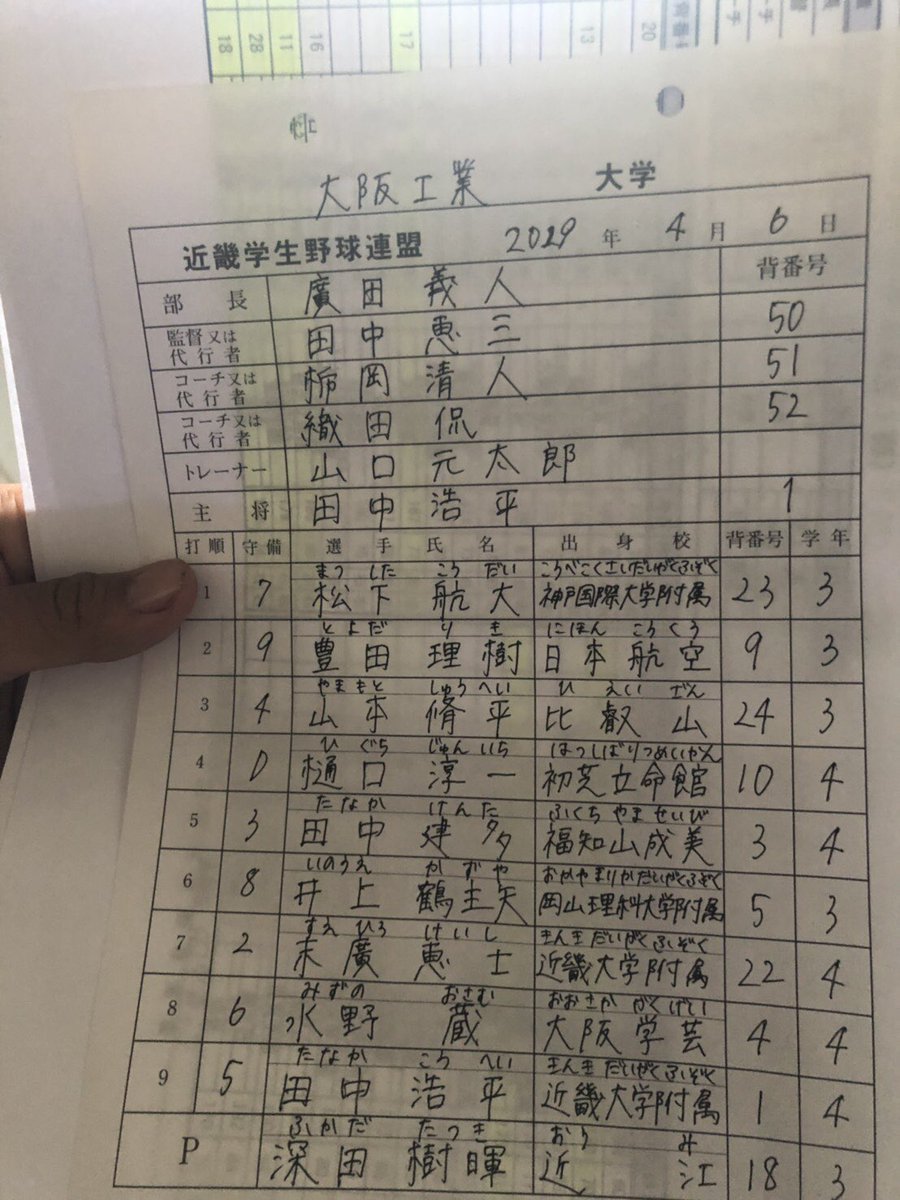 大阪工業 大学
近畿学生野球連盟 2019年 4月 6日
背番号
部長 廣田義人
監督又は代行者 田中恵三 50
コーチ又は代行者 栃岡清人 51
コーチ又は代行者 織田侃 52
トレーナー 山口元太郎
主将 田中浩平 1
打順 守備 選手氏名 出身校 背番号 学年
まつした こうだい こうべこくさいだいがくふぞく
1 7 松下航大 神戸国際大学附属 23 3
とよだ りき にほんこうくう
2 9 豊田理樹 日本航空 9 3
やまもと しゅうへい ひえいざん
3 4 山本脩平 比叡山 24 3
ひぐち じゅんいち はつしばりつめいかん
4 D 樋口淳一 初芝立命館 10 4
たなか けんた ふくちやませいび
5 3 田中建多 福知山成美 3 4
いのうえ かずや おかやまりかだいがくふぞく
6 8 井上鶴主矢 岡山理科大学附属 5 3
すえひろ けいし きんきだいがくふぞく
7 2 末廣恵士 近畿大学附属 22 4
みずの おさむ おおさかがくげい
8 6 水野蔵 大阪学芸 4 4
たなか こうへい きんきだいがくふぞく
9 5 田中浩平 近畿大学附属 1 4
ふかだ たつき おうみ
P 深田樹暉 近江 18 3